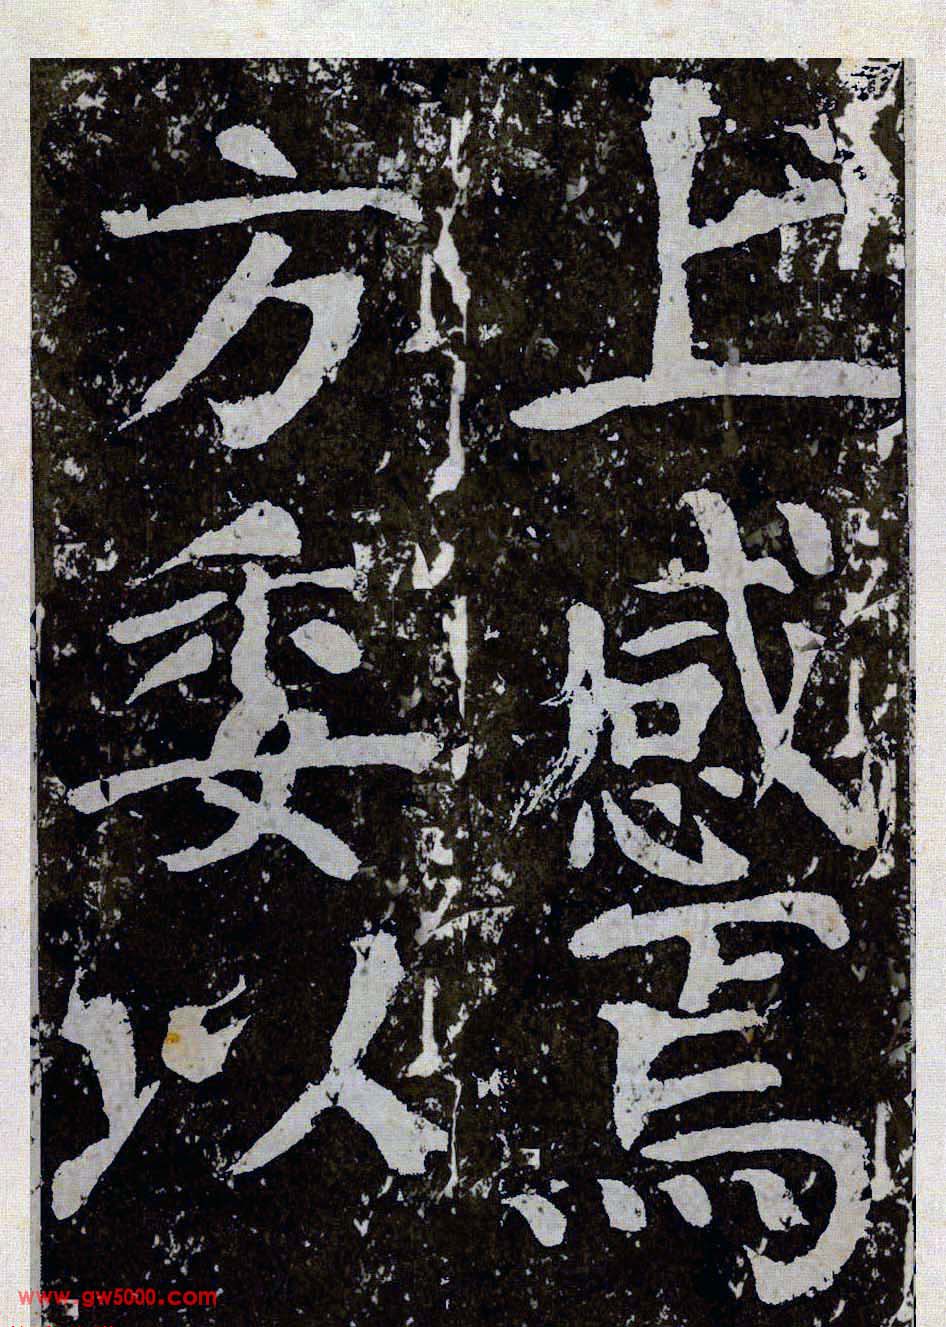 上感焉
方委以
www.gw5000.com